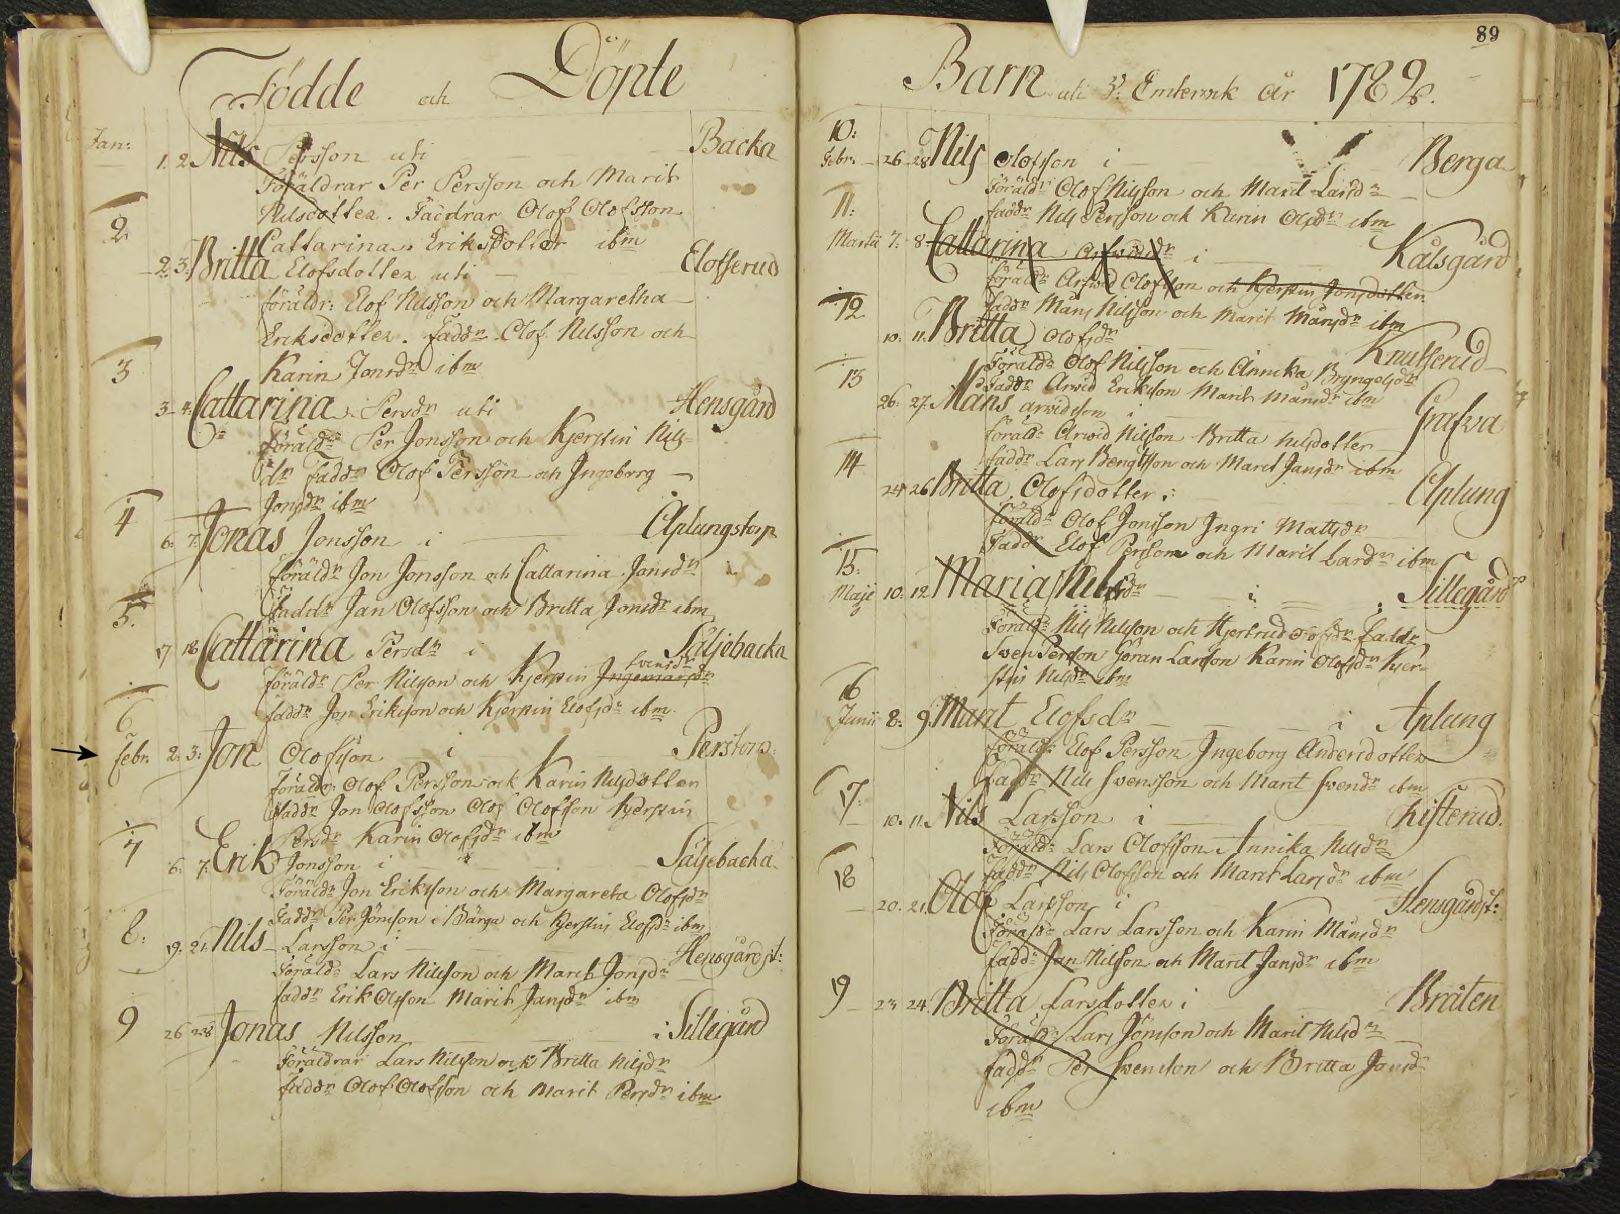 Födde och Döpte
Jan: 1. 2. Nils Persson uti Backa
Föräldrar Per Persson och Marit
Nilsdotter. Faddrar Olof Olofsson
Cattarina Eriksdotter ibm
2
2. 3. Britta Elofsdotter uti Elofserud
föräldr: Elof Nilsson och Margaretha
Eriksdotter. Faddr Olof Nilsson och
Karin Jonsdr ibm
3
3. 4. Cattarina Persdr uti Hensgård
föräldr Per Jonsson och Kjerstin Nils=
dr Faddr Olof Persson och Ingeborg
Jonsdr ibm
4
6. 7. Jonas Jonsson i Aplungstorp
föräldr Jon Jonsson och Cattarina Jonsdr
faddr Jan Olofsson och Britta Jonsdr ibm
5.
17 18 Cattarina Persdr i Säljebacka
Svensdr
föräldr Per Nilsson och Kjerstin Ingemarsdr
faddr Jon Eriksson och Kjerstin Elofsdr ibm
6
Febr. 2. 3. Jon Olofsson i Perstorp:
föräldr: Olof Persson och Karin Nilsdotter
faddr Jon Olofsson Olof Olofsson Kjerstin
Persdr Karin Olofsdr ibm
7
6. 7. Erik Jonsson i Säljebacka
Föräldr Jon Eriksson och Margareta Olofsdr
Faddr Per Jönsson i Bärga och Kjerstin Elofsdr ibm
8:
19. 21. Nils Larsson i Hensgårdst:
Föräldr Lars Nilsson och Marit Jonsdr
faddr Erik Olsson Marit Jansdr ibm
9
26 28 Jonas Nilsson i Sillegård
Föräldrar Lars Nilsson och Britta Nilsdr
faddr Olof Olofsson och Marit Persdr ibm
89
Barn uti Emtervik år 1789.
10:
Febr. 26 28 Nils Olofsson i Berga
Föräldr Olof Nilsson och Marit Larsdr
faddr Nils Persson och Karin Olsdr ibm
11:
Martii 7. 8 Cattarina Arfwidsdr i Kålsgård
föräldr Arfwid Olofsson och Kjerstin Jonsdotter
faddr Måns Nilsson och Marit Månsdr ibm
12
10. 11. Britta Olofsdr Knutserud
Föräldr Olof Nilsson och Annika Bryngelsdr
Faddr Arvid Eriksson Marit Månsdr ibm
13
26. 27. Måns Arwidsson i Grafva
föräldr Arwid Nilsson Britta Nilsdotter
faddr Lars Bengtsson och Marit Jansdr ibm
14
24 26 Britta Olofsdotter Aplung
föräldr Olof Jonsson Ingri Mattsdr
Faddr Elof Persson och Marit Larsdr ibm
15:
Maji 10. 12 Maria Nilsdr i Sillegård
Föräldr Nils Nilsson och Kjertrud Olofsdr faddr
Sven Persson Göran Larsson Karin Olofsdr Kjer=
stin Nilsdr ibm
16
Junii 8: 9. Marit Elofsdr i Aplung
föräldr Elof Persson Ingeborg Andersdotter
faddr Nils Svensson och Marit Svensdr ibm
17:
10. 11. Nils Larsson i Kisterud.
Föräldr Lars Olofsson Annika Nilsdr
faddr Nils Olofsson och Marit Larsdr ibm
18
20. 21. Olof Larsson i Hensgårdst:
Föräldr Lars Larsson och Karin Månsdr
faddr Jan Nilsson och Marit Jansdr ibm
19
23 24. Britta Larsdotter i Bråten
Föräldr Lars Jönsson och Marit Nilsdr
faddr Per Svensson och Britta Jansdr
ibm